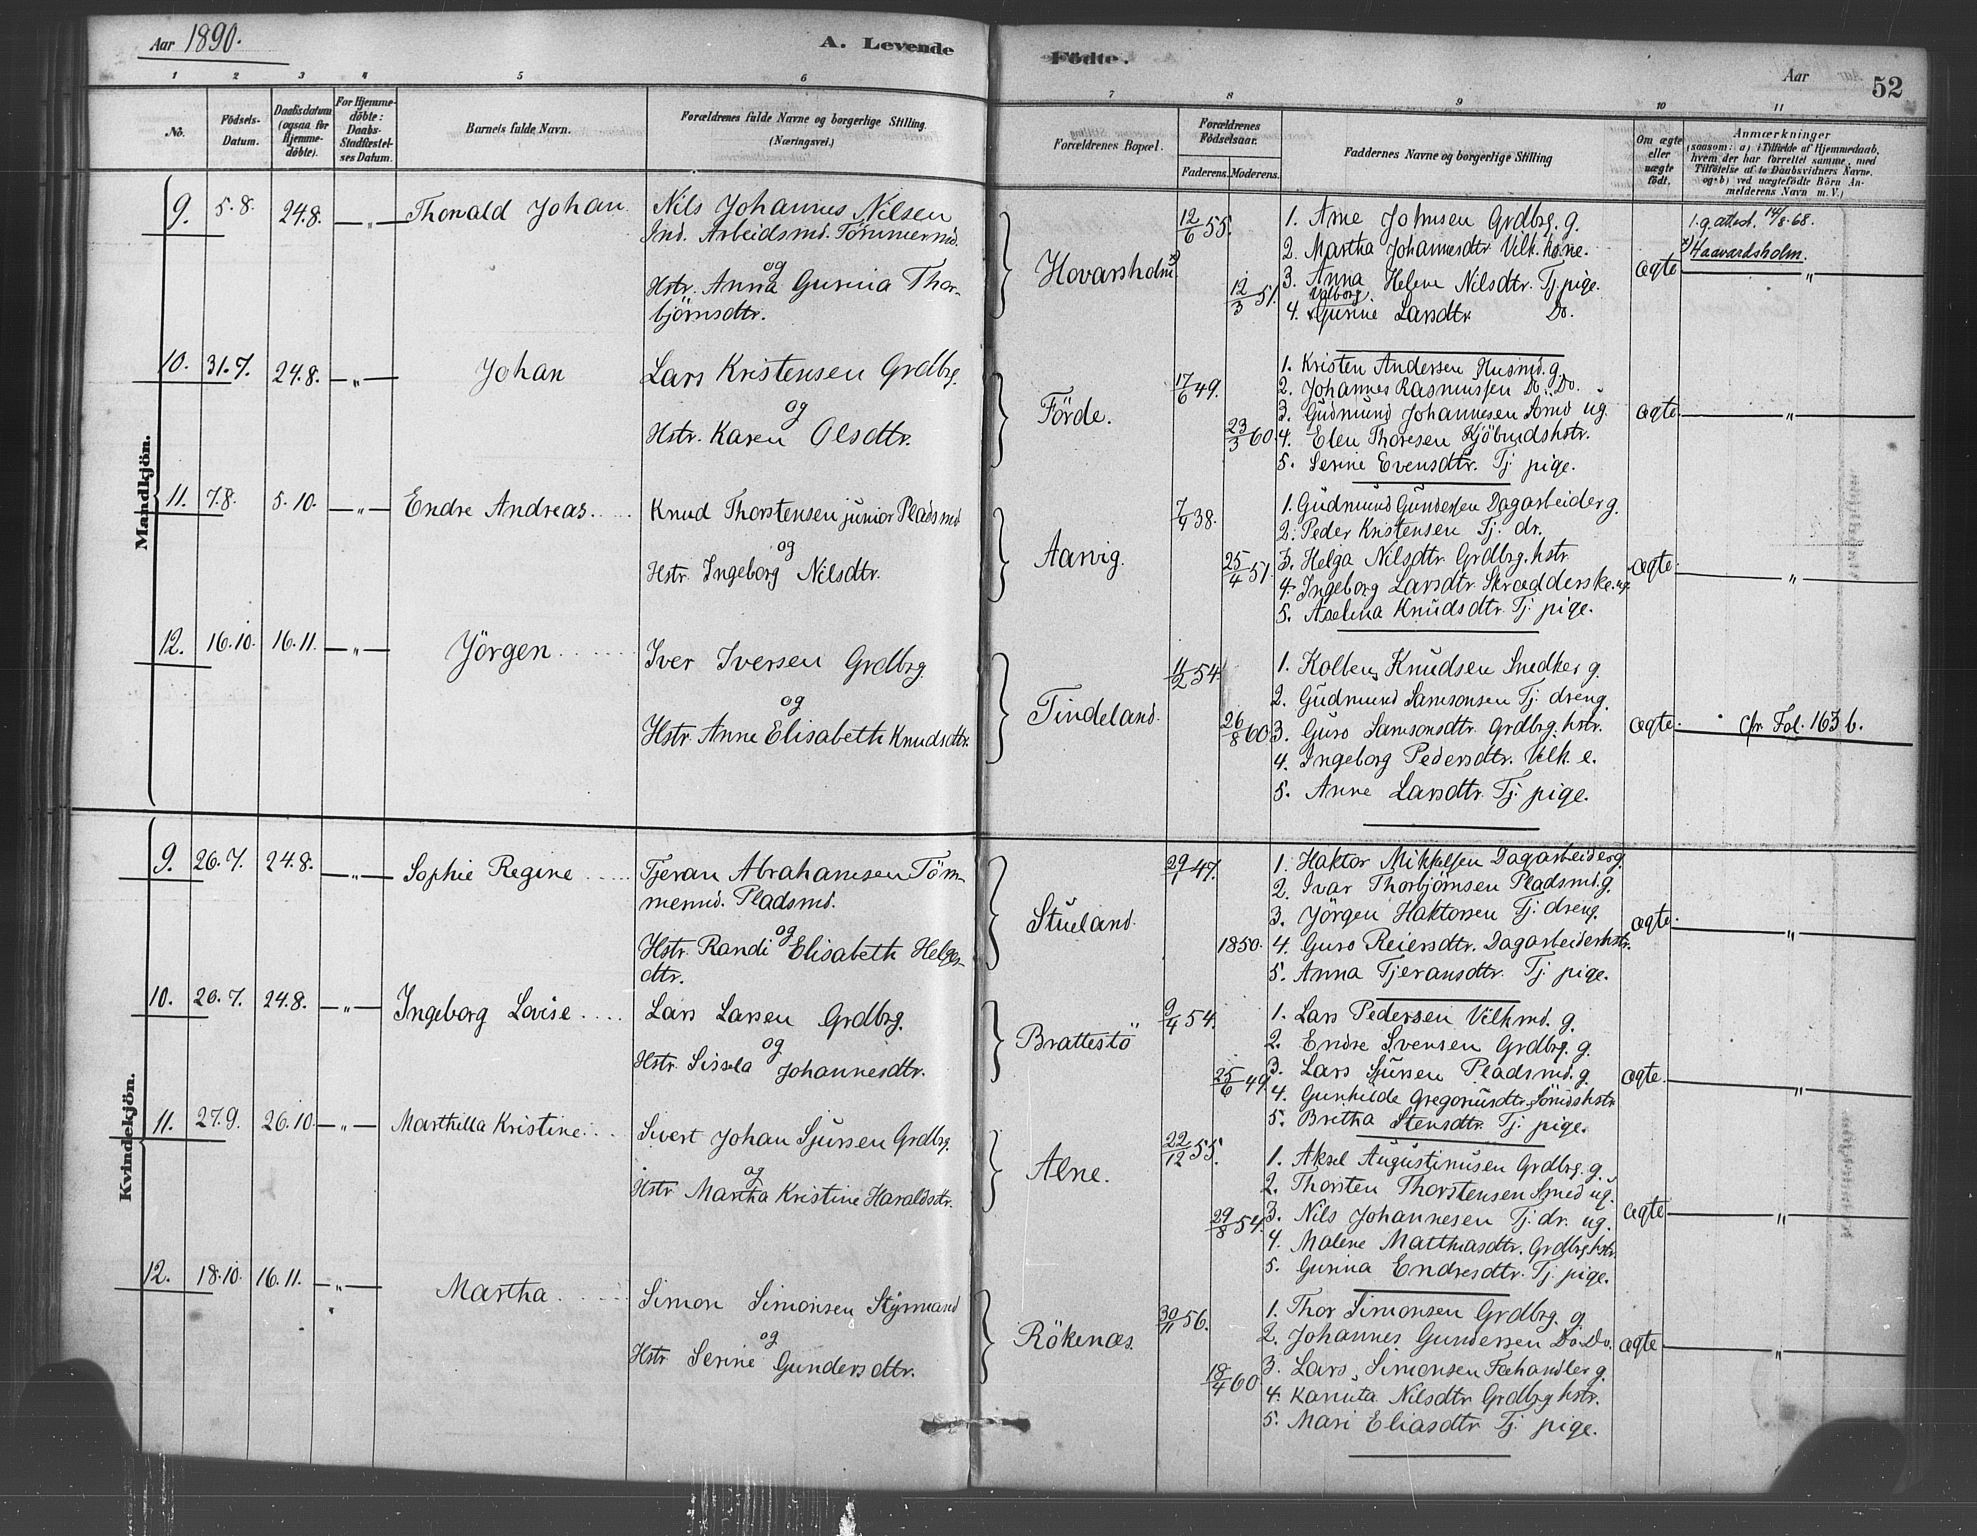 Aar 1890.
A. Levende
Födte.
Aar
52
1 2 3 4 5 6 7 8 9 10 11
No.
Födsels-Datum.
Daabsdatum (ogsaa for Hjemme-döbte).
For Hjemme-döbte: Daabs-Stadfæstel-ses Datum.
Barnets fulde Navn.
Forældrenes fulde Navne og borgerlige Stilling. (Næringsvei.)
Forældrenes Bopæl.
Forældrenes Födselsaar.
Faderens. Moderens.
Faddernes Navne og borgerlige Stilling
Om ægte eller uægte födt.
Anmærkninger
(saasom: a) i Tilfælde af Hjemmedaab, hvem der har forrettet samme, med Tilföielse af to Daabsvidners Navne, og b) ved uægtefödte Börn An-melderens Navn m. V.)
Mandkjön.
9. 5.8. 24.8. — „ — Thorvald Johan
Nils Johannes Nilsen
Ind. Arbeidsmd. Tömmermd.
og
Hstr. Anna Gurina Thor-
björnsdtr.
Hovarsholm x)
12/6 55.
12/3 51.
1. Arne Johnsen Grdbrg. g.
2. Martha Johannesdtr. Vilk. kone.
3. Anna Helene Nilsdtr. Tj. pige.
Valborg
4. Gurine Larsdtr. Do.
ægte
1. g. attest. 14/8.68.
x) Haavardsholm.
„
10. 31.7. 24.8. — „ — Johan
Lars Kristensen Grdbrg.
og
Hstr. Karen Olsdtr.
Förde.
17/6 49.
23/3 60
1. Kristen Andersen Husmd. g.
2. Johannes Rasmussen Do. Do.
3. Gudmund Johannesen Smd ug.
4. Elen Thoresen Kjöbmdshstr.
5. Serine Evensdtr. Tj. pige.
ægte.
„
11. 7.8. 5.10. — „ — Endre Andreas.
Knud Thorstensen junior Pladsmd
og
Hstr. Ingeborg Nilsdtr.
Aarvig.
7/4 38.
25/4 51.
1. Gudmund Gundersen Dagarbeider g.
2. Peder Kristensen Tj. dr.
3. Helga Nilsdtr. Grdbrg. hstr.
4. Ingeborg Larsdtr. Skrædderske. ug.
5. Aselina Knudsdtr. Tj. pige.
ægte.
„
12. 16.10. 16.11. — „ — Jörgen
Iver Iversen Grdbrg.
og
Hstr. Anne Elisabeth Knudsdtr.
Tindeland.
11/2 54.
26/8 60
1. Kolben Knudsen Snedker g.
2. Gudmund Samsonsen Tj. dreng.
3. Guro Samsonsdtr. Grdbrg. hstr.
4. Ingeborg Pedersdtr. Vilk. e.
5. Anne Larsdtr. Tj. pige.
ægte.
cfr. Fol. 163 b.
Kvindekjön.
9. 26.7. 24.8. — „ — Sophie Regine
Tjeran Abrahamsen Töm-
mermd. Pladsmd.
og
Hstr. Randi Elisabeth Helges-
dtr.
Stueland.
29/1 47.
1850.
1. Haktor Mikkelsen Dagarbeider g.
2. Ivar Thorbjörnsen Pladsmd. g.
3. Jörgen Haktorsen Tj. dreng.
4. Guro Reiersdtr. Dagarbeiderhstr.
5. Anna Tjeransdtr. Tj. pige.
ægte.
„
10. 20.7. 24.8. — „ — Ingeborg Lovise
Lars Larsen Grdbrg.
og
Hstr. Sissela Johannesdtr.
Brattestö
9/4 54.
25/6 49
1. Lars Pedersen Vilkmd. g.
2. Endre Svensen Grdbrg. g.
3. Lars Sjursen Pladsmd. g.
4. Gunhilde Gregoriusdtr. Smdshstr.
5. Bretha Stensdtr. Tj. pige.
ægte.
„
11. 27.9. 26.10. — „ — Marthilla Kristine
Sivert Johan Sjursen Grdbrg.
og
Hstr. Martha Kristine Haraldsdtr.
Alne.
22/12 55.
29/8 54.
1. Aksel Augustinusen Grdbrg. g.
2. Thorsten Thorstensen Smed ug.
3. Nils Johannesen Tj. dr. ug.
4. Malene Matthiasdtr. Grdbrghstr.
5. Gurina Endresdtr. Tj. pige.
ægte
„
12. 18.10. 16.11. — „ — Martha
Simon Simonsen Styrmand
og
Hstr Serine Gundersdtr.
Rökenæs.
30/11 56.
18/4 60
1. Thor Simonsen Grdbrg. g.
2. Johannes Gundersen Do. Do.
3. Lars Simonsen Fæhandler g.
4. Kanuta Nilsdtr. Grdbrg. hstr.
5. Mari Eliasdtr. Tj. pige.
ægte
„